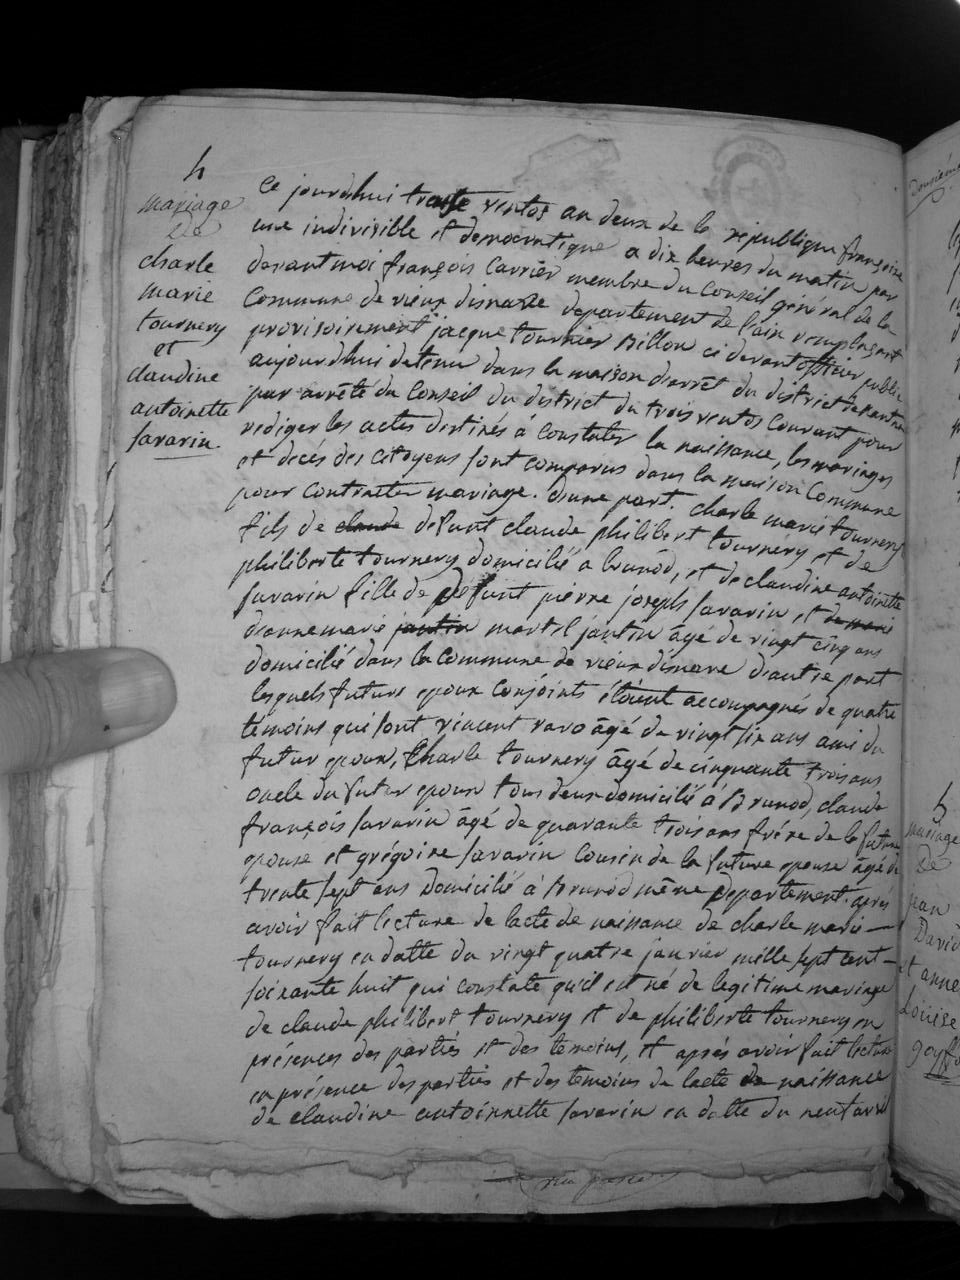 h
mariage
de
charle
marie
tournery
et
claudine
antoinette
savarin
Ce jourdhui trente ventos an deux de la republique françoise
une indivisible et democratique a dix heures du matin par
devant moi françois Carrier membre du Conseil général de la
Commune de vieux disnave departement de lain remplaçant
provisoirement jacque tournier billon ci devant officier public
aujourdhui detenu dans la maison darrêt du district
par arrêté du Conseil du district du trois ventos Courant pour
rediger les actes destinés à Constater la naissance, les mariages
et decés des citoyens sont comparus dans la maison Commune
pour Contracter mariage. dune part. Charle marie tournery
fils de claude defunt claude philibert tournery et de
philiberte tournery domicilié a brunod, et de claudine antoinette
savarin fille de defunt pierre joseph savarin et de marie
dionnemarie jantin martel jantin âgé de vingt cinq ans
domicilié dans la Commune de vieux disnave dautre part
lesquels futurs epoux Conjoints étoient accompagnés de quatre
témoins qui sont vincent ravo âgé de vingt six ans ami du
futur epoux, Charle tournery âgé de cinquante trois ans
oncle du futur epoux tous deux domicilié à Brunod, claude
françois savarin âgé de quarante trois ans frére de la future
epouse et grégoire savarin Cousin de la future epouse âgé de
trente sept ans Domicilié à brunod même departement. aprés
avoir fait lecture de lacte de naissance de charle marie —
tournery en datte du vingt quatre janvier mille sept cent —
soixante huit qui constate qu'il est né de legitime mariage
de claude philibert tournery et de philiberte tournery en
présences des partiés et des temoins, et aprés avoir fait lecture
en présence des partiés et des temoins de lacte de naissance
de claudine antoinnette savarin en datte du neuf avril
h
mariage
De
jean
David
et anne
Louise